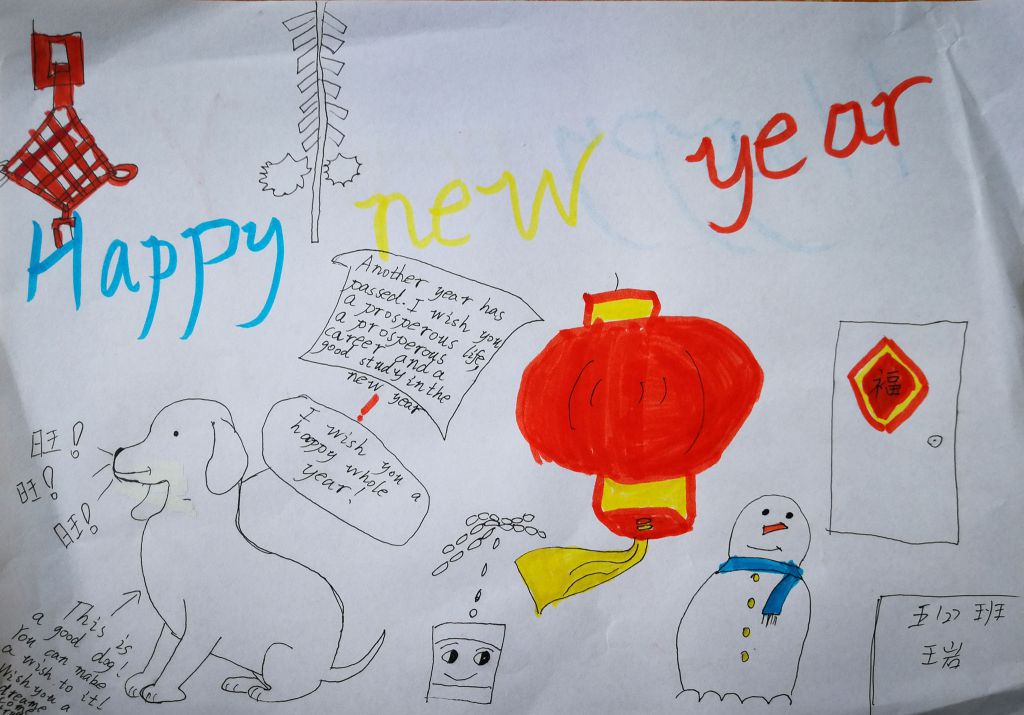 Happy new year
Another year has
passed. I wish you
a prosperous life,
a prosperous
career and a
good study in the
new year
!
I wish you a
happy whole
year!
福
旺!
旺!
旺!
This is
a good dog!
You can make
a wish to it!
Wish you a
dreams
come
五(2)班
王岩